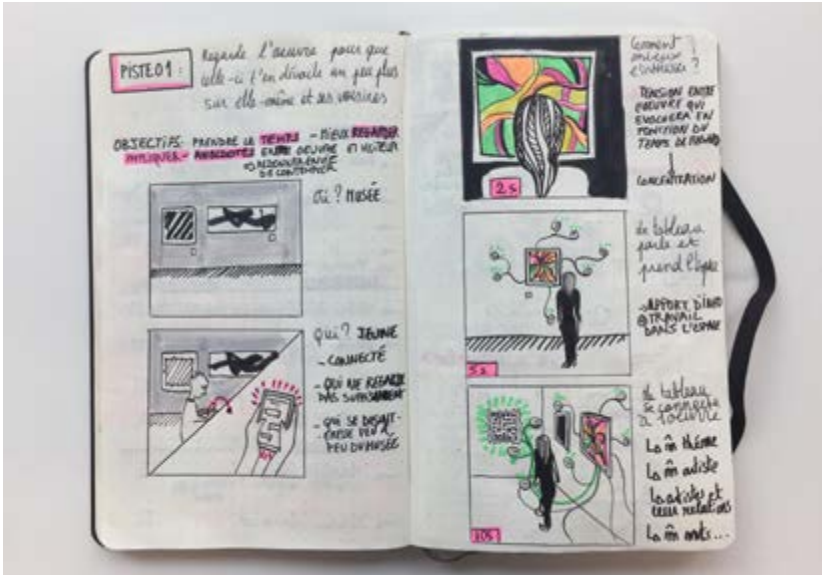 PISTE 01 :
Regarde l'œuvre pour que
celle-ci t'en dévoile un peu plus
sur elle-même et ses voisines
OBJECTIFS: PRENDRE LE TEMPS - MIEUX REGARDER
IMPLIQUER - ANECDOTES ENTRE OEUVRE ET VISITEUR
REDONNER ENVIE
DE CONTEMPLER
Où ? MUSÉE
qui ? JEUNE
- CONNECTÉ
- QUI NE REGARDE
PAS SUFFISAMMENT
- QUI SE DÉSINT-
ÉRESSE PEU À
PEU DU MUSÉE
Comment ?
TENSION ENTRE
L'OEUVRE QUI
ÉVOLUERA EN
FONCTION DU
TEMPS DE REGARD
CONCENTRATION
2s
le tableau
parle et
prend l'espace
→ APPORT D'INFO
⊕ TRAVAIL
DANS L'ESPACE
5s
le tableau
se connecte
à l'oeuvre
↳ m̂ thème
↳ m̂ artiste
↳ artistes et
leurs relations
↳ m̂ mots...
10s